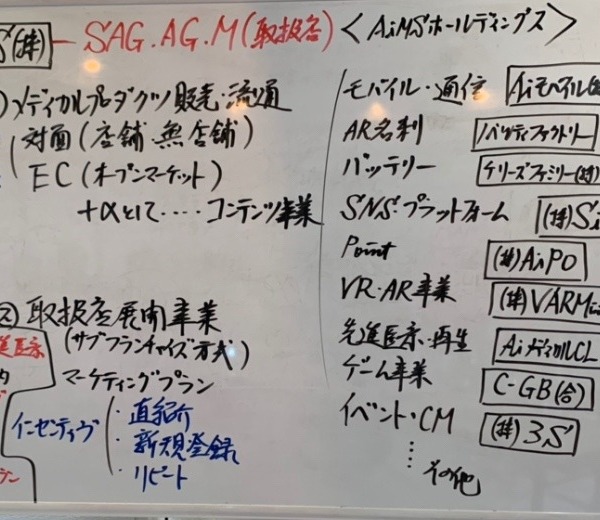 S(株) - SAG.AG.M(取扱店) <AiMSホールディングス>
メディカルプロダクツ販売・流通
対面(店舗・無店舗)
EC(オープンマーケット)
+αとして‥‥コンテンツ事業
② 取扱店展開事業
(サブフランチャイズ方式)
マーケティングプラン
インセンティヴ
・直紹介
・新規登録
・リピート
モバイル・通信 Aiモバイル
AR名刺 ノバリティファクトリー
バッテリー ケリーズファミリー(株)
SNS・プラットフォーム (株)Si
Point (株)AiPO
VR・AR事業 (株)VARMi
先進医療・再生 AiメディカルCL
ゲーム事業 C-GB(合)
イベント・CM (株)3S
その他